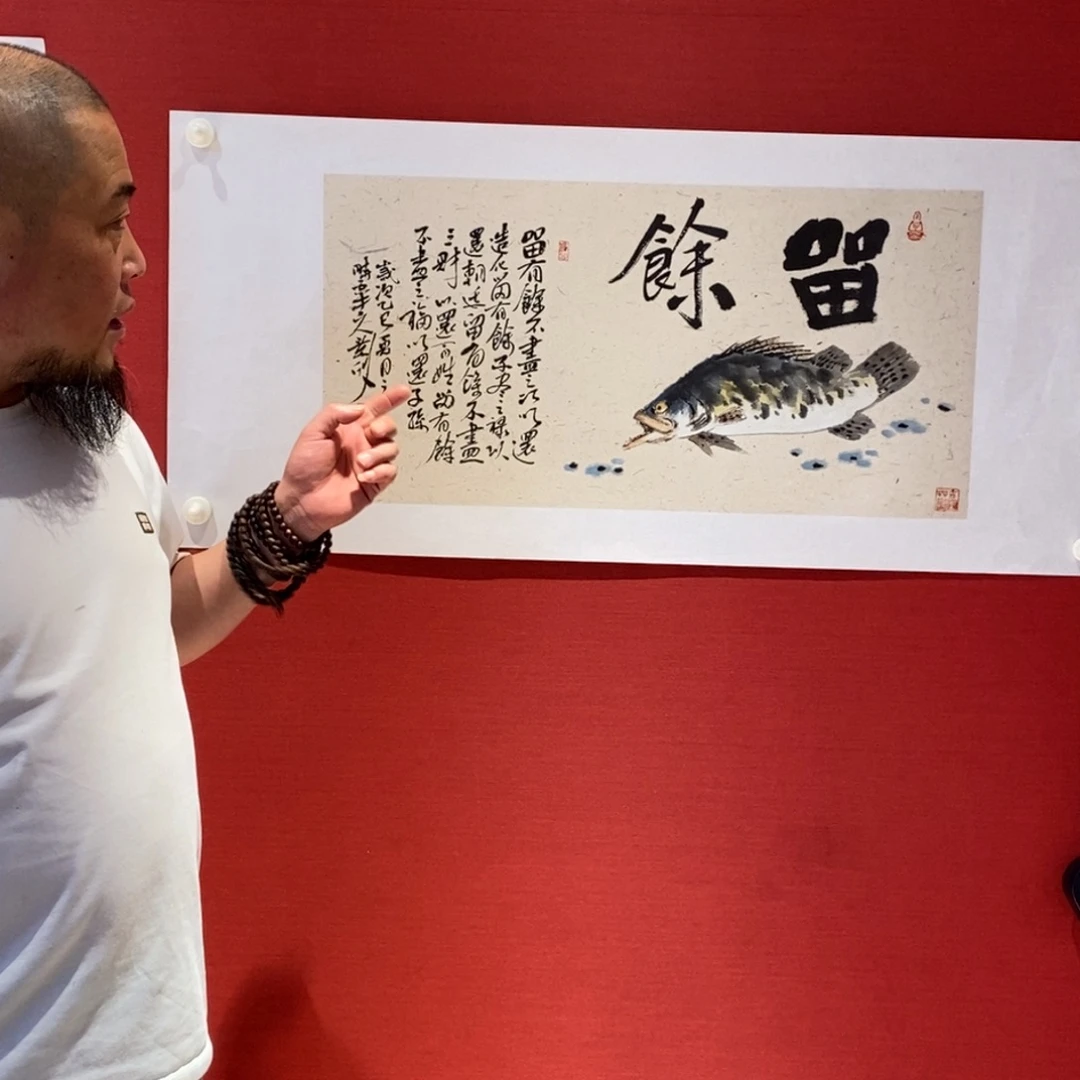 留餘
留有餘不盡之巧以還
造化留有餘不盡之祿以
還朝廷留有餘不盡
之財以還百姓留有餘
不盡之福以還子孫
歲次乙巳夏月